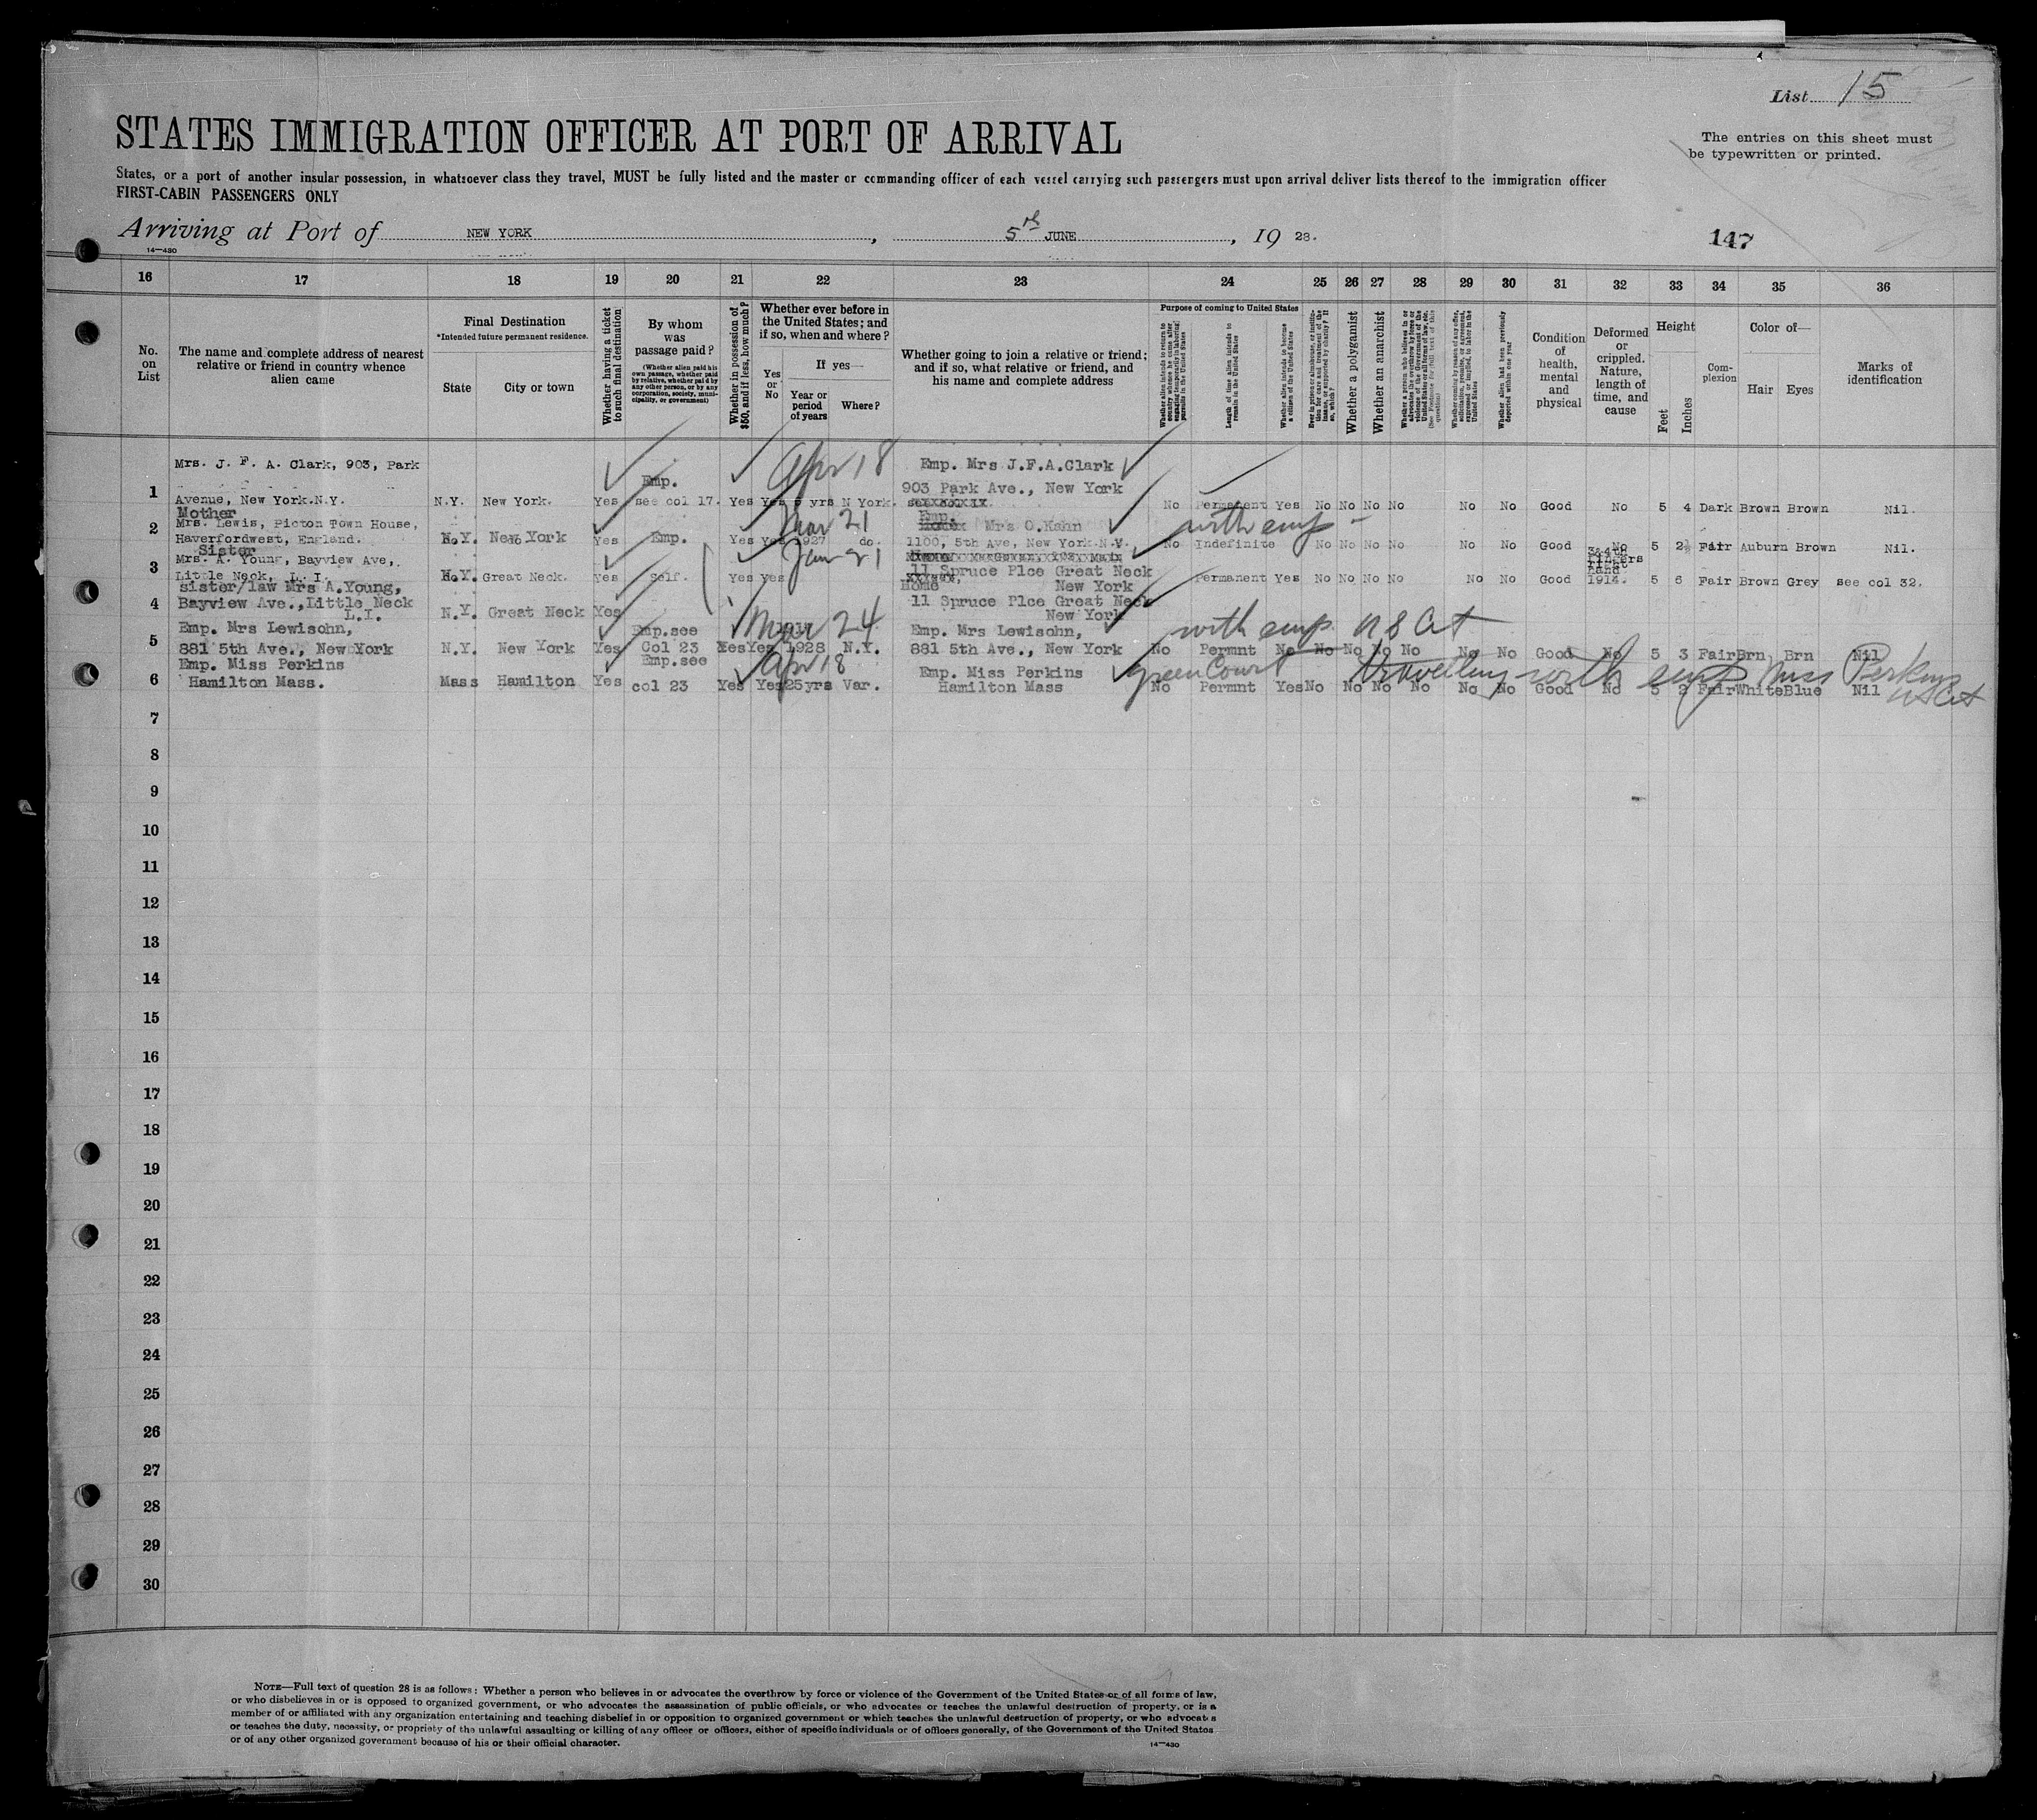 List 15
STATES IMMIGRATION OFFICER AT PORT OF ARRIVAL
The entries on this sheet must
be typewritten or printed.
States, or a port of another insular possession, in whatsoever class they travel, MUST be fully listed and the master or commanding officer of each vessel carrying such passengers must upon arrival deliver lists thereof to the immigration officer
FIRST-CABIN PASSENGERS ONLY
Arriving at Port of NEW YORK, 5th JUNE, 19 28.
147
14—430
16 17 18 19 20 21 22 23 24 25 26 27 28 29 30 31 32 33 34 35 36
No. on List
The name and complete address of nearest relative or friend in country whence alien came
Final Destination
*Intended future permanent residence.
State
City or town
Whether having a ticket to such final destination
By whom was passage paid?
(Whether alien paid his own passage, whether paid by relative, whether paid by any other person, or by any corporation, society, municipality, or government)
Whether in possession of $50, and if less, how much?
Whether ever before in the United States; and if so, when and where?
Yes or No
If yes—
Year or period of years
Where?
Whether going to join a relative or friend; and if so, what relative or friend, and his name and complete address
Purpose of coming to United States
Whether alien intends to return to country whence he came after engaging temporarily in laboring pursuits in the United States
Length of time alien intends to remain in the United States
Whether alien intends to become a citizen of the United States
Ever in prison or almshouse, or institution for care and treatment of the insane, or supported by charity? If so, which?
Whether a polygamist
Whether an anarchist
Whether a person who believes in or advocates the overthrow by force or violence of the Government of the United States or all forms of law, etc. (See Footnote for full text of this question)
Whether coming by reason of any offer, solicitation, promise, or agreement, expressed or implied, to labor in the United States
Whether alien had been previously deported within one year
Condition of health, mental and physical
Deformed or crippled. Nature, length of time, and cause
Height
Feet
Inches
Complexion
Color of—
Hair
Eyes
Marks of identification
Mrs. J. F. A. Clark, 903, Park Emp. Apr 18 Emp. Mrs J.F.A.Clark
903 Park Ave., New York
1 Avenue, New York.N.Y. N.Y. New York. Yes see col 17. Yes Yes 5 yrs N York. No Permatent Yes No No No No No No Good No 5 4 Dark Brown Brown Nil.
Mother Mar 21 Emp.
2 Mrs. Lewis, Picton Town House, Mrs O.Kahn with emp -
Haverfordwest, England. N.Y. New York Yes Emp. Yes Yes 1927 do. 1100, 5th Ave, New York.N.Y. No Indefinite No No No No No No Good No 5 2½ Fair Auburn Brown Nil.
Sister Jan 21
3 Mrs. A. Young, Bayview Ave, 3&4th fingers right hand
11 Spruce Plce Great Neck
Little Neck, L.I. N.Y. Great Neck. Yes self. Yes Yes Home New York Permanent Yes No No No No No No Good 1914. 5 6 Fair Brown Grey see col 32.
sister/law Mrs A.Young,
4 Bayview Ave.,Little Neck 11 Spruce Plce Great Neck
L.I. N.Y. Great Neck Yes New York
Emp. Mrs Lewisohn, Emp.see Mar 24 Emp. Mrs Lewisohn, with emp. U S Cit
5 881 5th Ave., New York N.Y. New York Yes Col 23 Yes Yes 1928 N.Y. 881 5th Ave., New York No Permnt No No No No No No No Good No 5 3 Fair Brn Brn Nil
Emp. Miss Perkins Emp.see Apr 18 Emp. Miss Perkins green Court travelling with emp Miss Perkins
6 Hamilton Mass. Mass Hamilton Yes col 23 Yes Yes 25yrs Var. Hamilton Mass No Permnt Yes No No No No No No Good No 5 2 Fair White Blue Nil US Cit
7
8
9
10
11
12
13
14
15
16
17
18
19
20
21
22
23
24
25
26
27
28
29
30
NOTE—Full text of question 28 is as follows: Whether a person who believes in or advocates the overthrow by force or violence of the Government of the United States or of all forms of law,
or who disbelieves in or is opposed to organized government, or who advocates the assassination of public officials, or who advocates or teaches the unlawful destruction of property, or is a
member of or affiliated with any organization entertaining and teaching disbelief in or opposition to organized government or which teaches the unlawful destruction of property, or who advocates
or teaches the duty, necessity, or propriety of the unlawful assaulting or killing of any officer or officers, either of specific individuals or of officers generally, of the Government of the United States
or of any other organized government because of his or their official character.
14—430